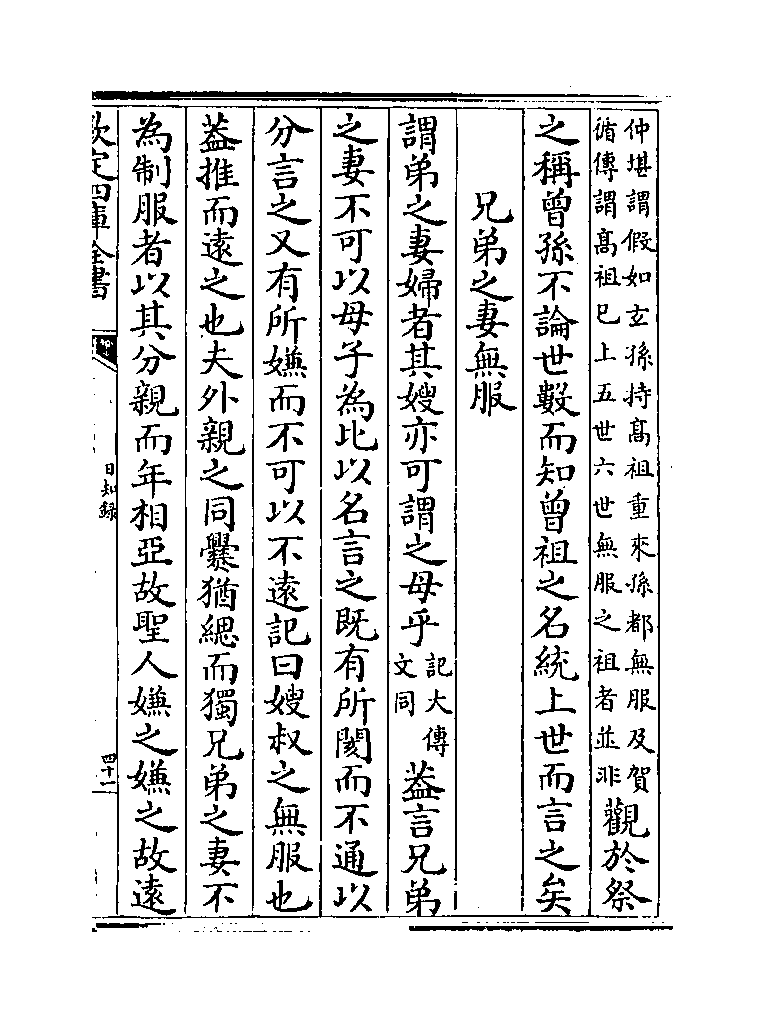 仲堪謂假如玄孫持高祖重來孫都無服及賀
循傳謂髙祖已上五世六世無服之祖者並非
觀於祭
之稱曾孫不論世數而知曾祖之名統上世而言之矣
兄弟之妻無服
謂弟之妻婦者其嫂亦可謂之母乎
記大傳
文同
葢言兄弟
之妻不可以母子為比以名言之既有所閡而不通以
分言之又有所嫌而不可以不遠記曰嫂叔之無服也
葢推而遠之也夫外親之同爨猶緦而獨兄弟之妻不
為制服者以其分親而年相亞故聖人嫌之嫌之故遠
欽定四庫全書
日知録
四十一